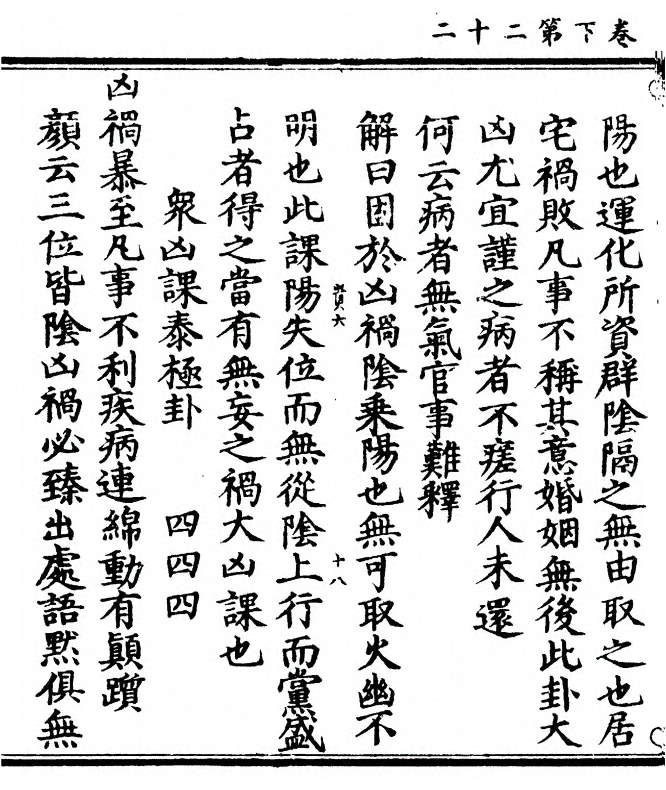 卷下第二十二
陽也運化所資群陰隔之無由取之也居
宅禍敗凡事不稱其意婚姻無後此卦大
凶尤宜謹之病者不瘥行人未還
何云病者無氣官事難釋
解曰困於凶禍陰乘陽也無可取火幽不
明也此課陽失位而無從陰上行而黨盛
占者得之當有無妄之禍大凶課也
衆凶課泰極卦 四四四
凶禍暴至凡事不利疾病連綿動有顛躓
顏云三位皆陰凶禍必臻出處語默俱無
十八